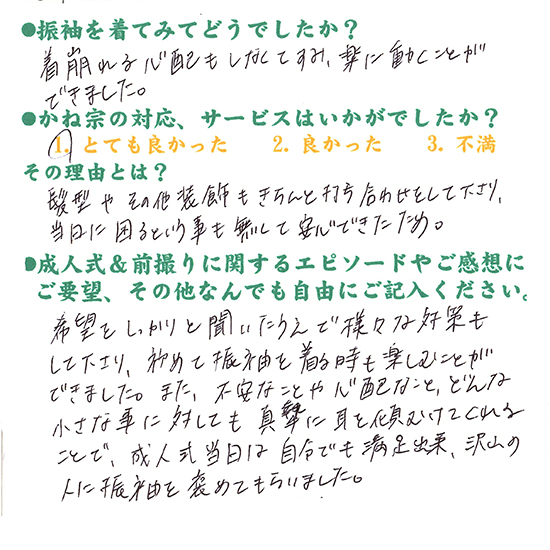 ●振袖を着てみてどうでしたか？
着崩れる心配もしなくてすみ、楽に動くことが
できました。
●かね宗の対応、サービスはいかがでしたか？
1. とても良かった　2. 良かった　3. 不満
その理由とは？
髪型やその他装飾もきちんと打ち合わせをして下さり、
当日に困るという事も無して安心できたため。
●成人式＆前撮りに関するエピソードやご感想に
ご要望、その他なんでも自由にご記入ください。
希望をしっかりと聞いたうえで様々な対策も
して下さり、初めて振袖を着る時も楽しむことが
できました。また、不安なことや心配なこと、どんな
小さな事に対しても真摯に耳を傾むけてくれる
ことで、成人式当日は自分でも満足出来、沢山の
人に振袖を褒めてもらいました。